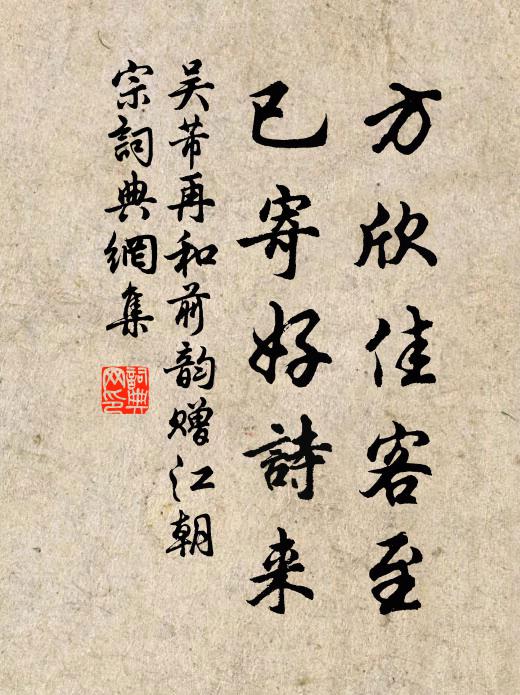 方欣佳客至
已寄好詩来
吴芾再和前韵赠江朝
宗詞典網集
詞典網印